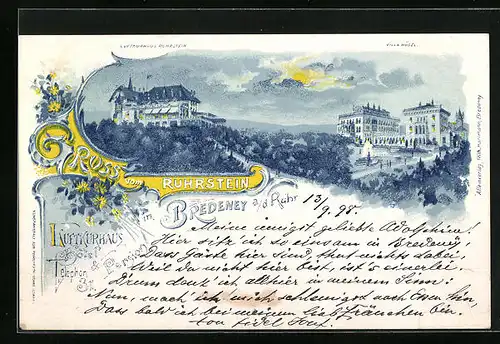 LUFTKURHAUS RUHRSTEIN
VILLA HÜGEL
GRUSS vom RUHRSTEIN
in BREDENEY a/d Ruhr 13/9. 98.
LUFTKURHAUS
Hôtel & Pension
Telephon
Meine innigst geliebte Adolphine!
Hier sitz ich so einsam in Bredeney,
Dass Gäste hier sind, thut nichts dabei,
Weil du nicht hier bist, ist's einerlei.
Drum denk' ich allhier in meinem Sinn:
Nun, mach' ich mich schleunigst nach Essen hin,
Dass bald ich bei meinem Liebfräuchen bin.